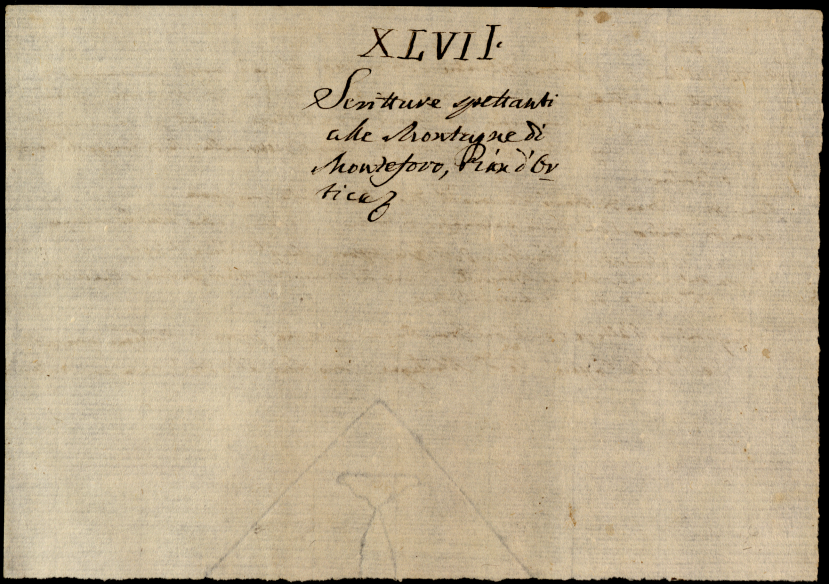 XLVII.
Scritture spettanti
alle Montagne di
Monteforo, Pian d'Or
tica